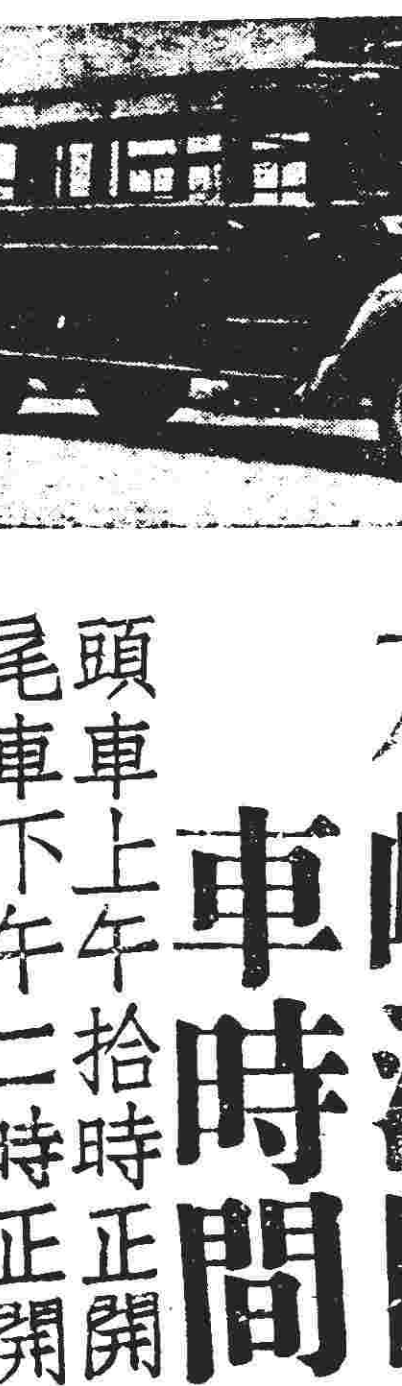 車時間
頭車上午拾時正開
尾車下午二時正開